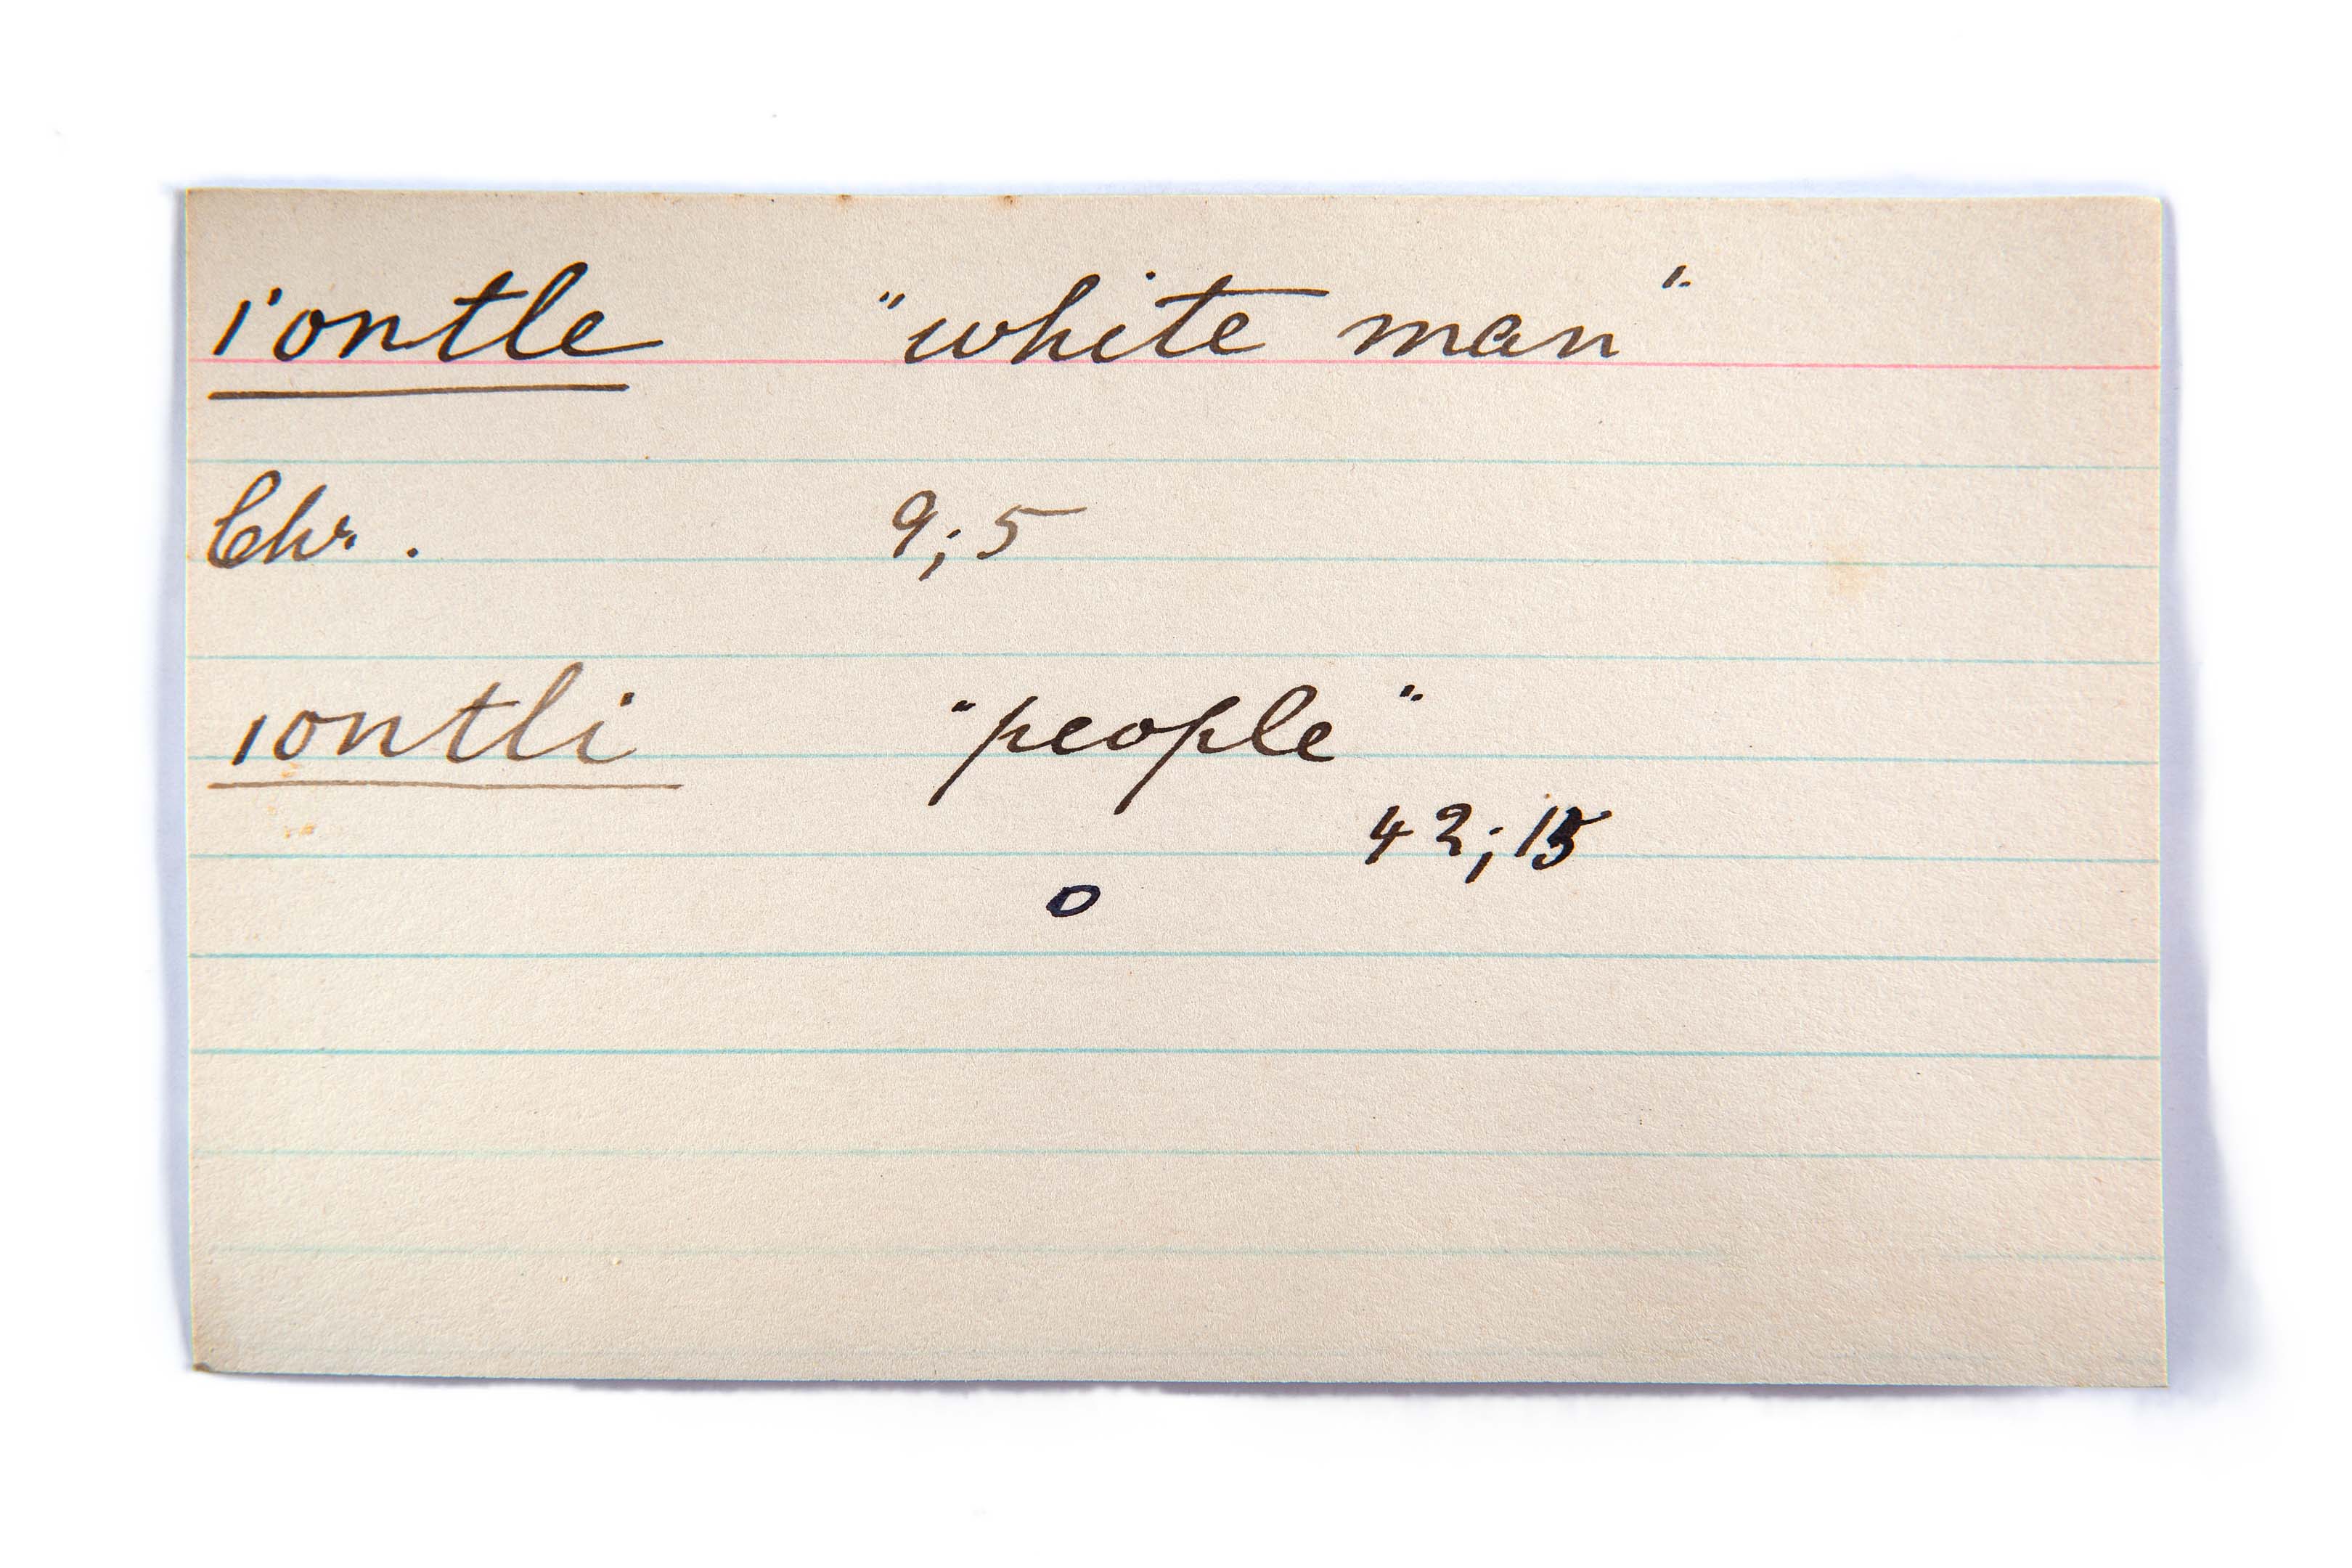 iontle "white man"
Chr. 9;5
iontli "people"
42;15
o